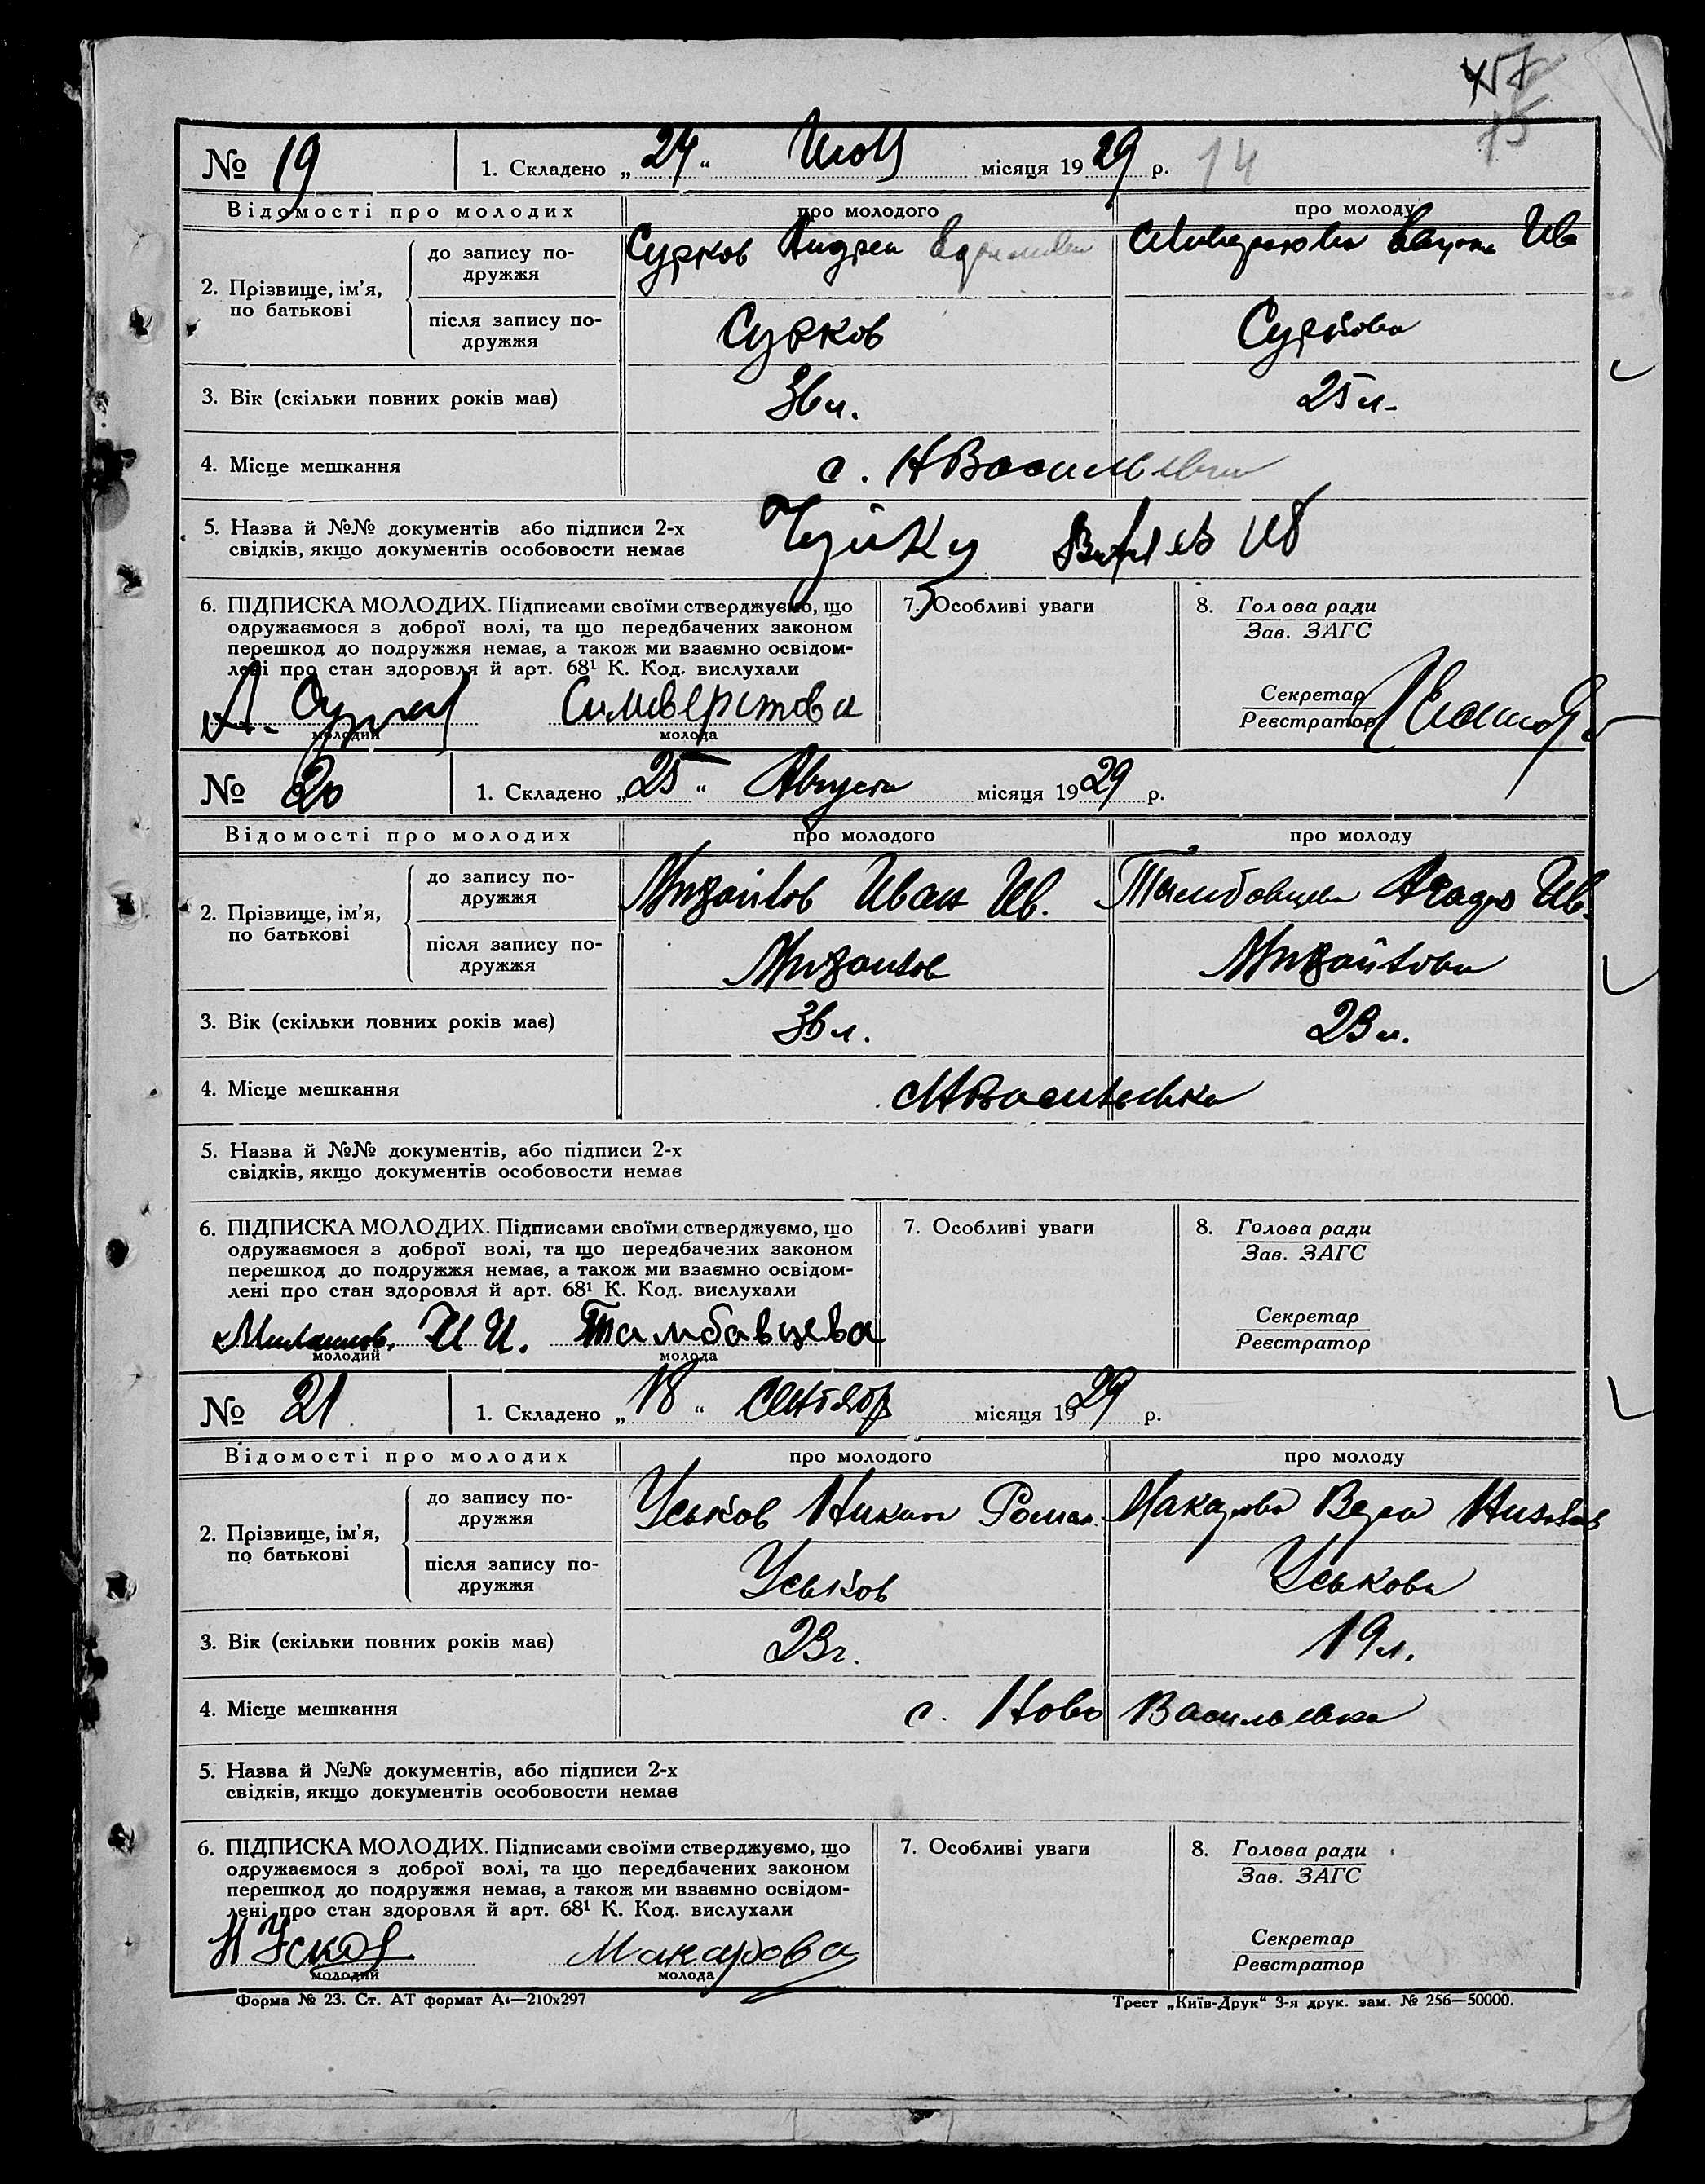 14
15
№ 19
1. Складено „ 24 “ Июль місяця 19 29 р.
Відомості про молодих
про молодого
про молоду
2. Прізвище, ім’я, по батькові
до запису подружжя
Сурков Андрей
Ив
після запису подружжя
Сурков
Суркова
3. Вік (скільки повних років має)
36 л.
25 л.
4. Місце мешкання
с. НВасильевка
5. Назва й №№ документів або підписи 2-х
свідків, якщо документів особовости немає
6. ПІДПИСКА МОЛОДИХ. Підписами своїми стверджуємо, що
одружаємося з доброї волі, та що передбачених законом
перешкод до подружжя немає, а також ми взаємно освідом-
лені про стан здоровля й арт. 68¹ К. Код. вислухали
А. Сурков
Силиверстова
молодий
молода
7. Особливі уваги
8. Голова ради
Зав. ЗАГС
Секретар
Реєстратор
№ 20
1. Складено „ 25 “ Августа місяця 19 29 р.
Відомості про молодих
про молодого
про молоду
2. Прізвище, ім’я, по батькові
до запису подружжя
Иван Ив.
Тамбовцева Ив.
після запису подружжя
3. Вік (скільки повних років має)
36 л.
23 л.
4. Місце мешкання
НВасильевка
5. Назва й №№ документів, або підписи 2-х
свідків, якщо документів особовости немає
6. ПІДПИСКА МОЛОДИХ. Підписами своїми стверджуємо, що
одружаємося з доброї волі, та що передбачених законом
перешкод до подружжя немає, а також ми взаємно освідом-
лені про стан здоровля й арт. 68¹ К. Код. вислухали
И И.
Тамбавцева
молодий
молода
7. Особливі уваги
8. Голова ради
Зав. ЗАГС
Секретар
Реєстратор
№ 21
1. Складено „ 18 “ Сентябр місяця 19 29 р.
Відомості про молодих
про молодого
про молоду
2. Прізвище, ім’я, по батькові
до запису подружжя
Уськов Никита Роман.
Макарова Вера
після запису подружжя
Уськов
Уськова
3. Вік (скільки повних років має)
23 г.
19 л.
4. Місце мешкання
с. Ново Васильевка
5. Назва й №№ документів, або підписи 2-х
свідків, якщо документів особовости немає
6. ПІДПИСКА МОЛОДИХ. Підписами своїми стверджуємо, що
одружаємося з доброї волі, та що передбачених законом
перешкод до подружжя немає, а також ми взаємно освідом-
лені про стан здоровля й арт. 68¹ К. Код. вислухали
Н Усков
Макарова
молодий
молода
7. Особливі уваги
8. Голова ради
Зав. ЗАГС
Секретар
Реєстратор
Форма № 23. Ст. АТ формат А₄—210х297
Трест „Київ-Друк“ 3-я друк. зам. № 256—50000.